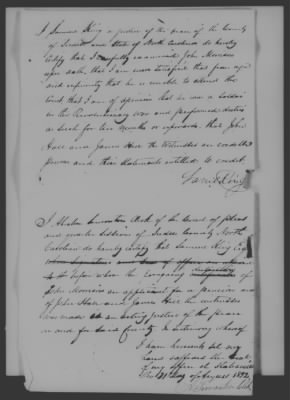 I Samuel King a Justice of the peace of the County
of Iredell and State of North Carolina do hereby
Certify that I carefully examined John Morrison
upon oath, that I am now satisfied that from age
and infirmity that he is unable to attend the
Court that I am of opinion that he was a soldier
in the Revolutionary War and performed duties
as such for two months or upwards. that John
Hall and James Hill the Witnesses are credible
persons and their Statements entitled to credit.
Saml King
I Abner Clerk of the Court of pleas
and quarter Sessions of Iredell County North
Carolina do hereby certify that Samuel King Esqr
before whom the foregoing of
John Morrison an applicant for a pension and
of John Hall and James Hill his witnesses
was made is an acting Justice of the peace
in and for said County. In testimony whereof
I have hereunto set my
name & affixed the seal
of my office at Statesville
this 21 day of August 1832